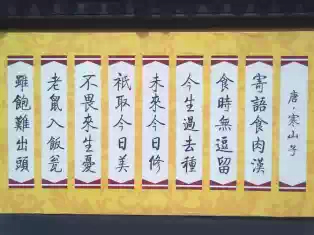 唐·寒山子
寄語食肉漢
食時無逗留
今生過去種
未來今日修
祗取今日美
不畏來生憂
老鼠入飯瓮
雖飽難出頭